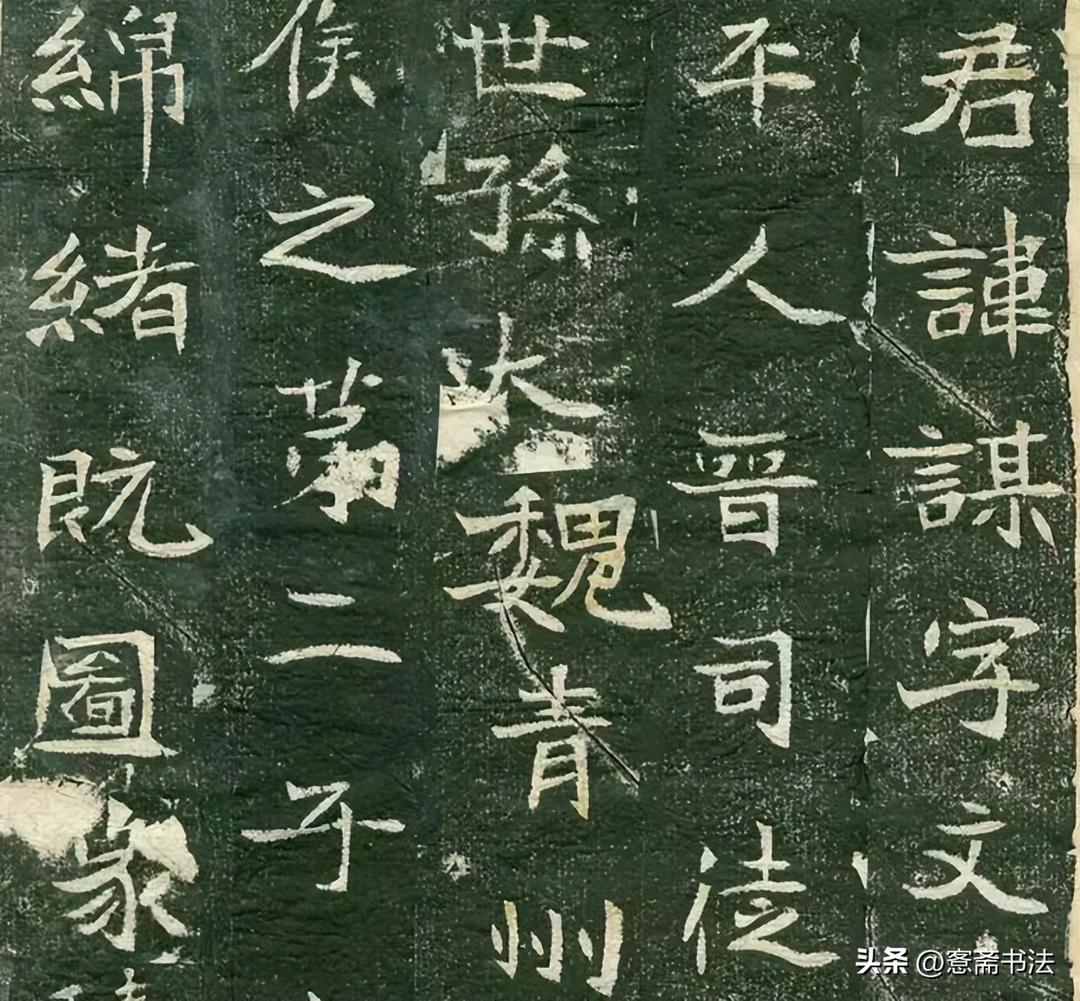 君諱謀字文
平人晉司徒
世孫大魏青州
侯之苐二子
綿緒既圖
头条 @窓斋书法